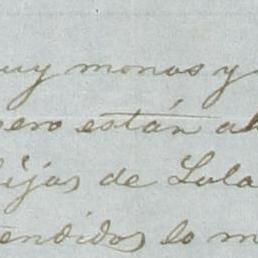 uy monas y
pero están al
hijas de Lola
tendidos lo m